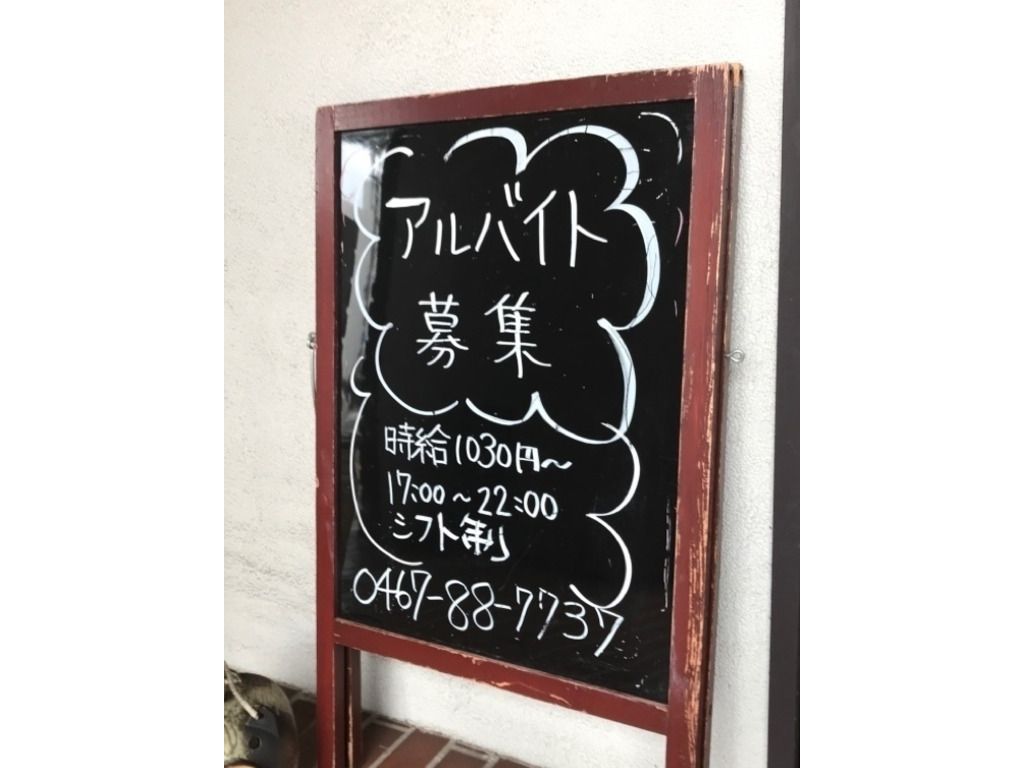 アルバイト
募集
時給1030円～
17:00～22:00
シフト制
0467-88-7737